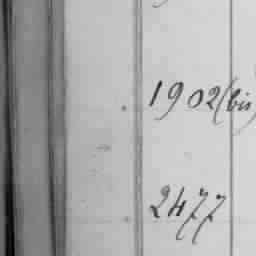 1902 (bis)
2477